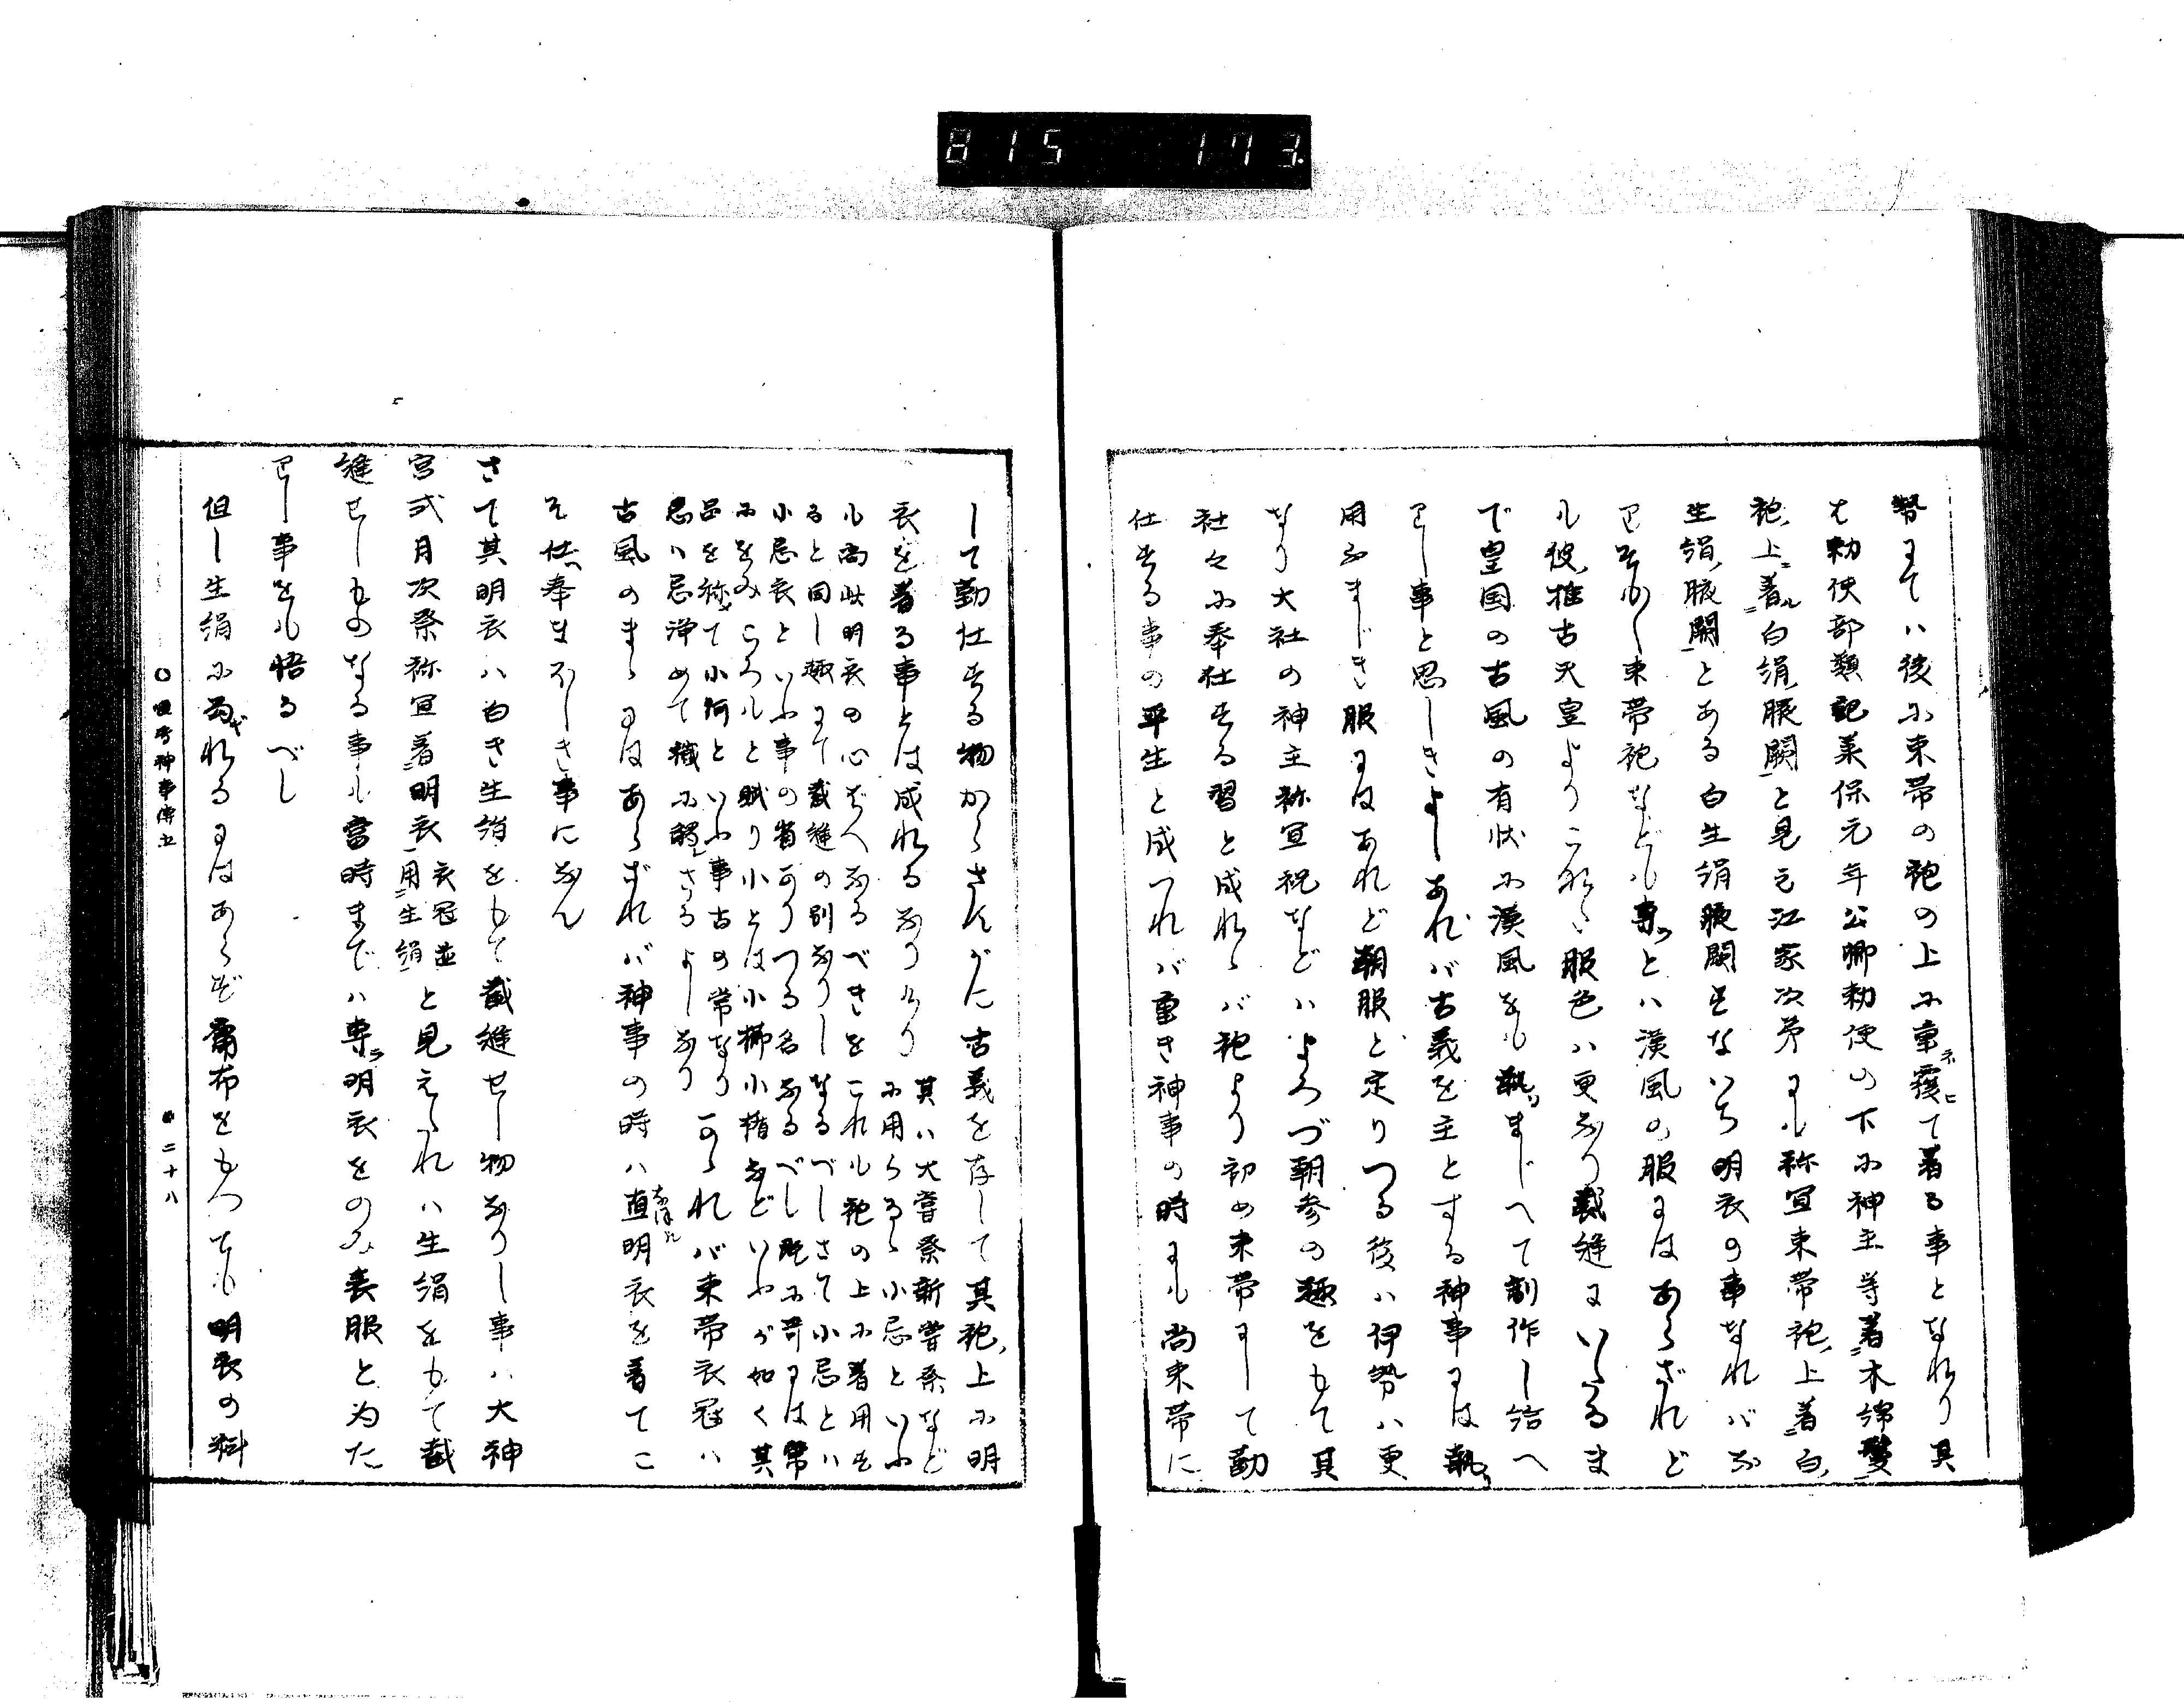 815 173.
勢にてハ後に束帯の袍の上に重覆て著る事となれり其
を勅使部類記業保元年公卿勅使の下に神主等着木綿鬘
袍上著白絹腋闕と見え江家次第にも祢宜束帯袍上著白
生絹腋闕とある白生絹腋闕そないち明衣の事なればな
りそも〳〵束帯袍などハ専と漢風の服にはあらざれど
も彼推古天皇よりこなた服色ハ更なり裁縫にいたるま
で皇国の古風の有状に漢風をも執まじへて制作し給へ
りし事と思しきよしあれバ古義を主とする神事には執
用ふまじき服にはあれど朝服と定りつる後ハ伊勢ハ更
なり大社の神主祢宜祝などハよろづ朝参の趣をもて其
社々に奉仕する習と成れゝバ袍より初め束帯にして勤
仕する事の平生と成つれバ重き神事の時にも尚束帯に
して勤仕する物からさすがに古義を存して其袍上に明
衣を著る事とは成れるなりけり
其ハ大嘗祭新嘗祭など
に用らるゝ小忌といふ
も尚此明衣の心ばへなるべきをこれも袍の上に著用す
ると同し趣にて裁縫の別なりしなるべしさて小忌とハ
小忌衣といふ事の省かりつる名なるべし既に奇には常
にをみころもと賦り小とは小櫛小楯などいふが如く其
品を称て小何といふ事古の常なり
忌ハ忌浄めて穢に触さるよしなり
かゝれバ束帯衣冠ハ
古風のまゝにはあらざれバ神事の時ハ直明衣を著てこ
そ仕奉まほしき事になん
さて其明衣ハ白き生絹をもて裁縫せし物なりし事ハ大神
宮式月次祭祢宜著明衣
衣冠並
用生絹
と見えたれハ生絹をもて裁
縫せしものなる事も当時までハ専明衣をのみ表服と為た
りし事をも悟るべし
但し生絹に局れるにはあらず麁布をもつても明衣の料
二十八